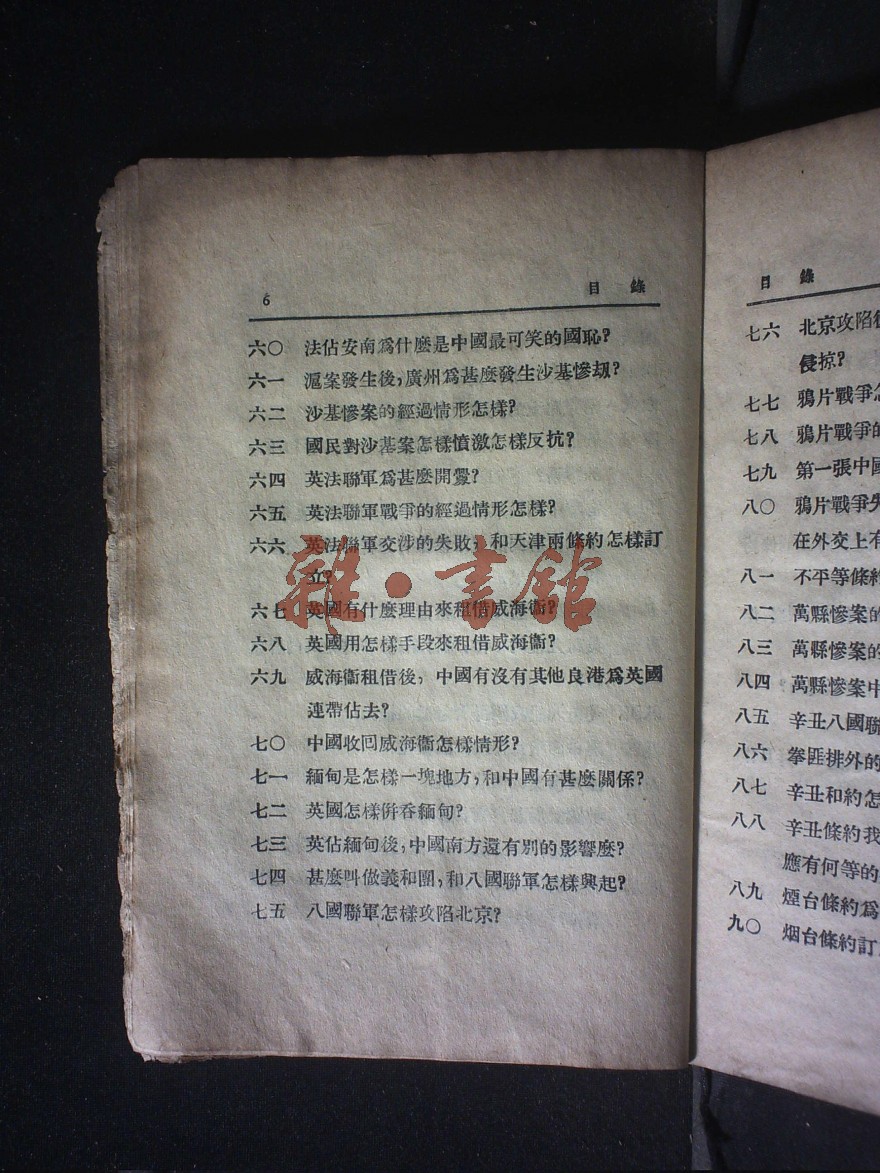 6 目錄
六〇 法佔安南爲什麼是中國最可笑的國恥?
六一 滬案發生後,廣州爲甚麼發生沙基慘刼?
六二 沙基慘案的經過情形怎樣?
六三 國民對沙基案怎樣憤激怎樣反抗?
六四 英法聯軍爲甚麼開釁?
六五 英法聯軍戰爭的經過情形怎樣?
六六 英法聯軍交涉的失敗,和天津兩條約怎樣訂
立?
六七 英國有什麼理由來租借威海衞?
六八 英國用怎樣手段來租借威海衞?
六九 威海衞租借後,中國有沒有其他良港爲英國
連帶佔去?
七〇 中國收囘威海衞怎樣情形?
七一 緬甸是怎樣一塊地方,和中國有甚麼關係?
七二 英國怎樣併吞緬甸?
七三 英佔緬甸後,中國南方還有別的影響麼?
七四 甚麼叫做義和團,和八國聯軍怎樣興起?
七五 八國聯軍怎樣攻陷北京?
雜·書館
目錄
七六 北京攻陷後
侵掠?
七七 鴉片戰爭怎
七八 鴉片戰爭的
七九 第一張中國
八〇 鴉片戰爭失
在外交上有
八一 不平等條約
八二 萬縣慘案的
八三 萬縣慘案的
八四 萬縣慘案中
八五 辛丑八國聯
八六 拳匪排外的
八七 辛丑和約怎
八八 辛丑條約我
應有何等的
八九 煙台條約爲
九〇 烟台條約訂